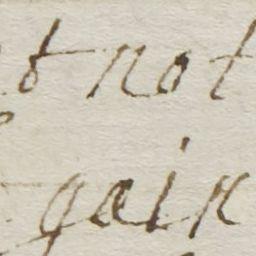 & not
gain